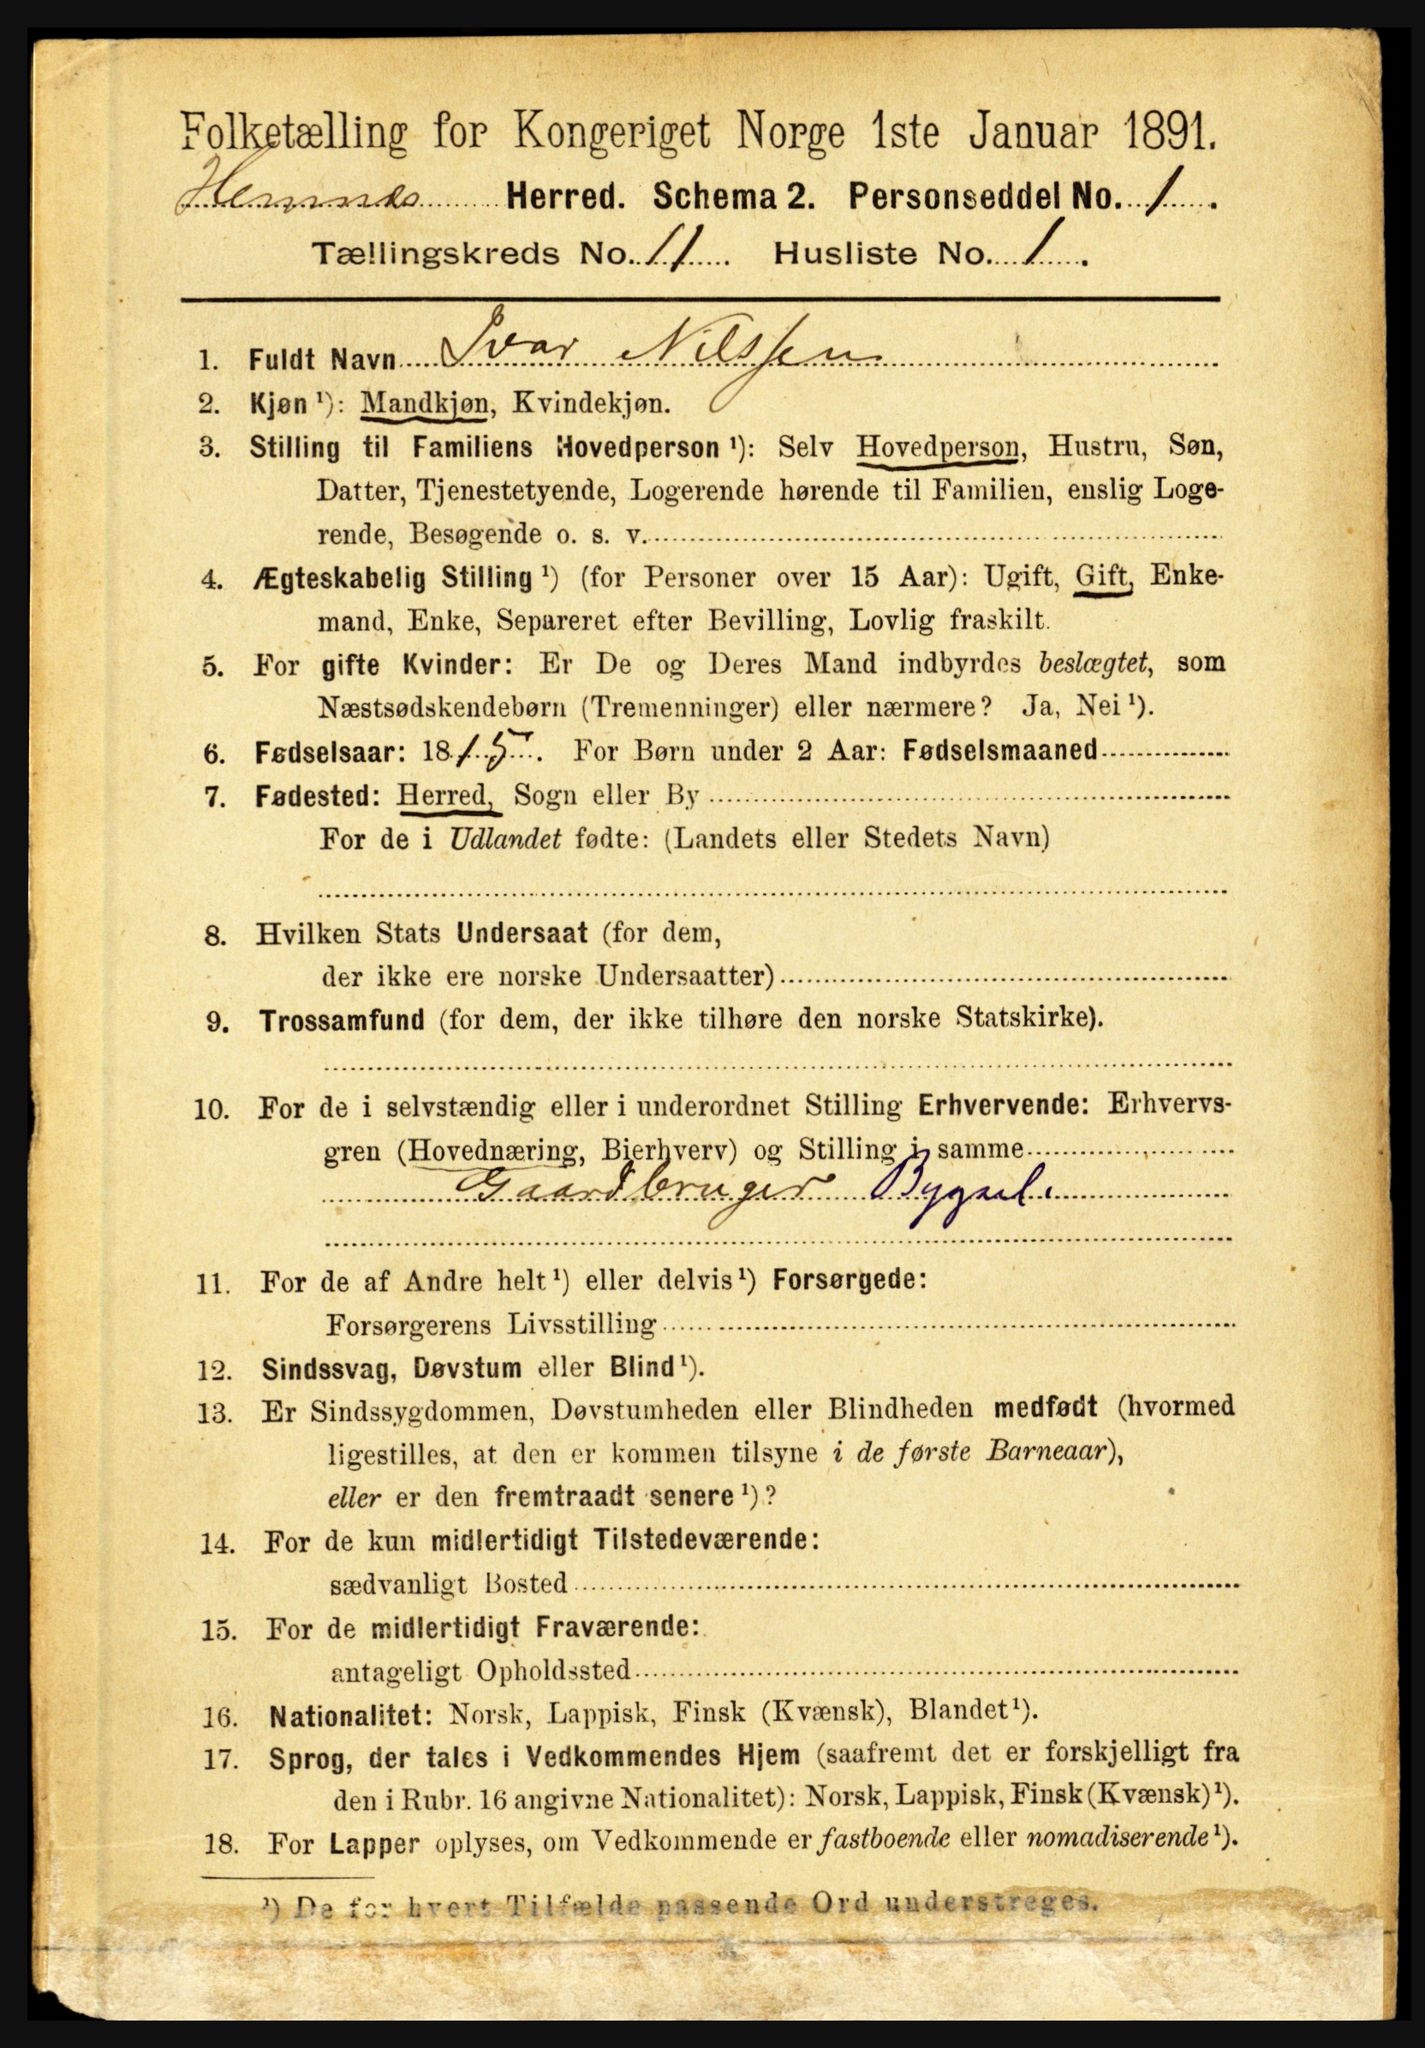 Folketælling for Kongeriget Norge 1ste Januar 1891.
Hemnes Herred. Schema 2. Personseddel No. 1.
Tællingskreds No. 11. Husliste No. 1.
1. Fuldt Navn Ivar Nilssen
2. Kjøn ¹): Mandkjøn, Kvindekjøn.
3. Stilling til Familiens Hovedperson ¹): Selv Hovedperson, Hustru, Søn,
Datter, Tjenestetyende, Logerende hørende til Familien, enslig Loge-
rende, Besøgende o. s. v.
4. Ægteskabelig Stilling ¹) (for Personer over 15 Aar): Ugift, Gift, Enke-
mand, Enke, Separeret efter Bevilling, Lovlig fraskilt.
5. For gifte Kvinder: Er De og Deres Mand indbyrdes beslægtet, som
Næstsødskendebørn (Tremenninger) eller nærmere? Ja, Nei ¹).
6. Fødselsaar: 1815. For Børn under 2 Aar: Fødselsmaaned
7. Fødested: Herred, Sogn eller By
For de i Udlandet fødte: (Landets eller Stedets Navn)
8. Hvilken Stats Undersaat (for dem,
der ikke ere norske Undersaatter)
9. Trossamfund (for dem, der ikke tilhøre den norske Statskirke).
10. For de i selvstændig eller i underordnet Stilling Erhvervende: Erhvervs-
gren (Hovednæring, Bierhverv) og Stilling i samme
Gaardbruger Bygsel.
11. For de af Andre helt ¹) eller delvis ¹) Forsørgede:
Forsørgerens Livsstilling
12. Sindssvag, Døvstum eller Blind ¹).
13. Er Sindssygdommen, Døvstumheden eller Blindheden medfødt (hvormed
ligestilles, at den er kommen tilsyne i de første Barneaar),
eller er den fremtraadt senere ¹)?
14. For de kun midlertidigt Tilstedeværende:
sædvanligt Bosted
15. For de midlertidigt Fraværende:
antageligt Opholdssted
16. Nationalitet: Norsk, Lappisk, Finsk (Kvænsk), Blandet ¹).
17. Sprog, der tales i Vedkommendes Hjem (saafremt det er forskjelligt fra
den i Rubr. 16 angivne Nationalitet): Norsk, Lappisk, Finsk (Kvænsk) ¹).
18. For Lapper oplyses, om Vedkommende er fastboende eller nomadiserende ¹).
¹) De for hvert Tilfælde passende Ord understreges.